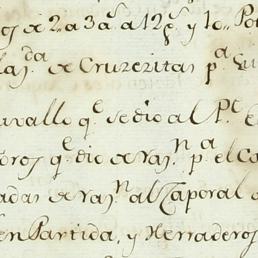 os de 2 a 3 a^s a 12 p^s y 1o.. Po
las.^da de Cruzeritas p^a su
avallo q^e se dio al P^e
oros q^e dio de raz.^n p^a el Ca
adas de raz.^n al Caporal
en Partida, y Herraderos